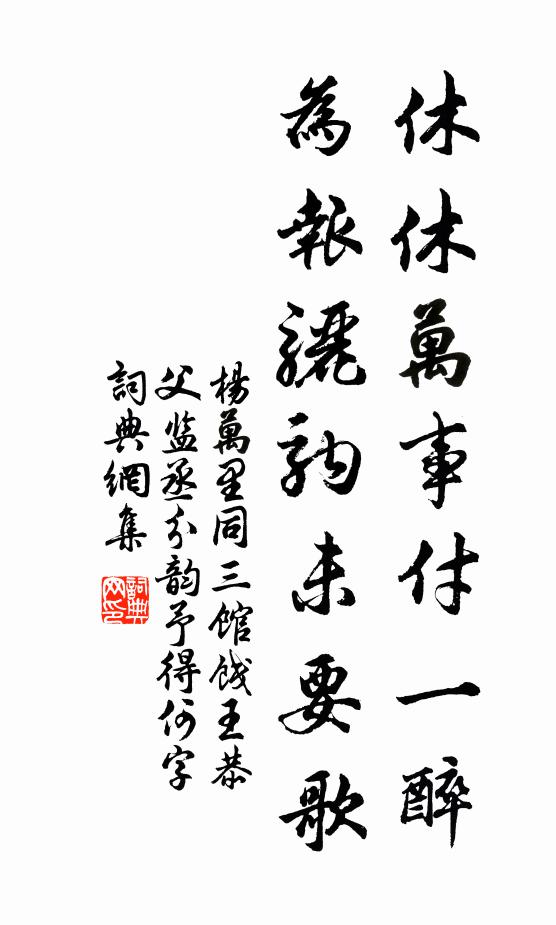 休休萬事付一醉
為報驪駒未要歌
楊萬里同三館餞王恭
父监丞分韵予得何字
詞典網集
詞典网印